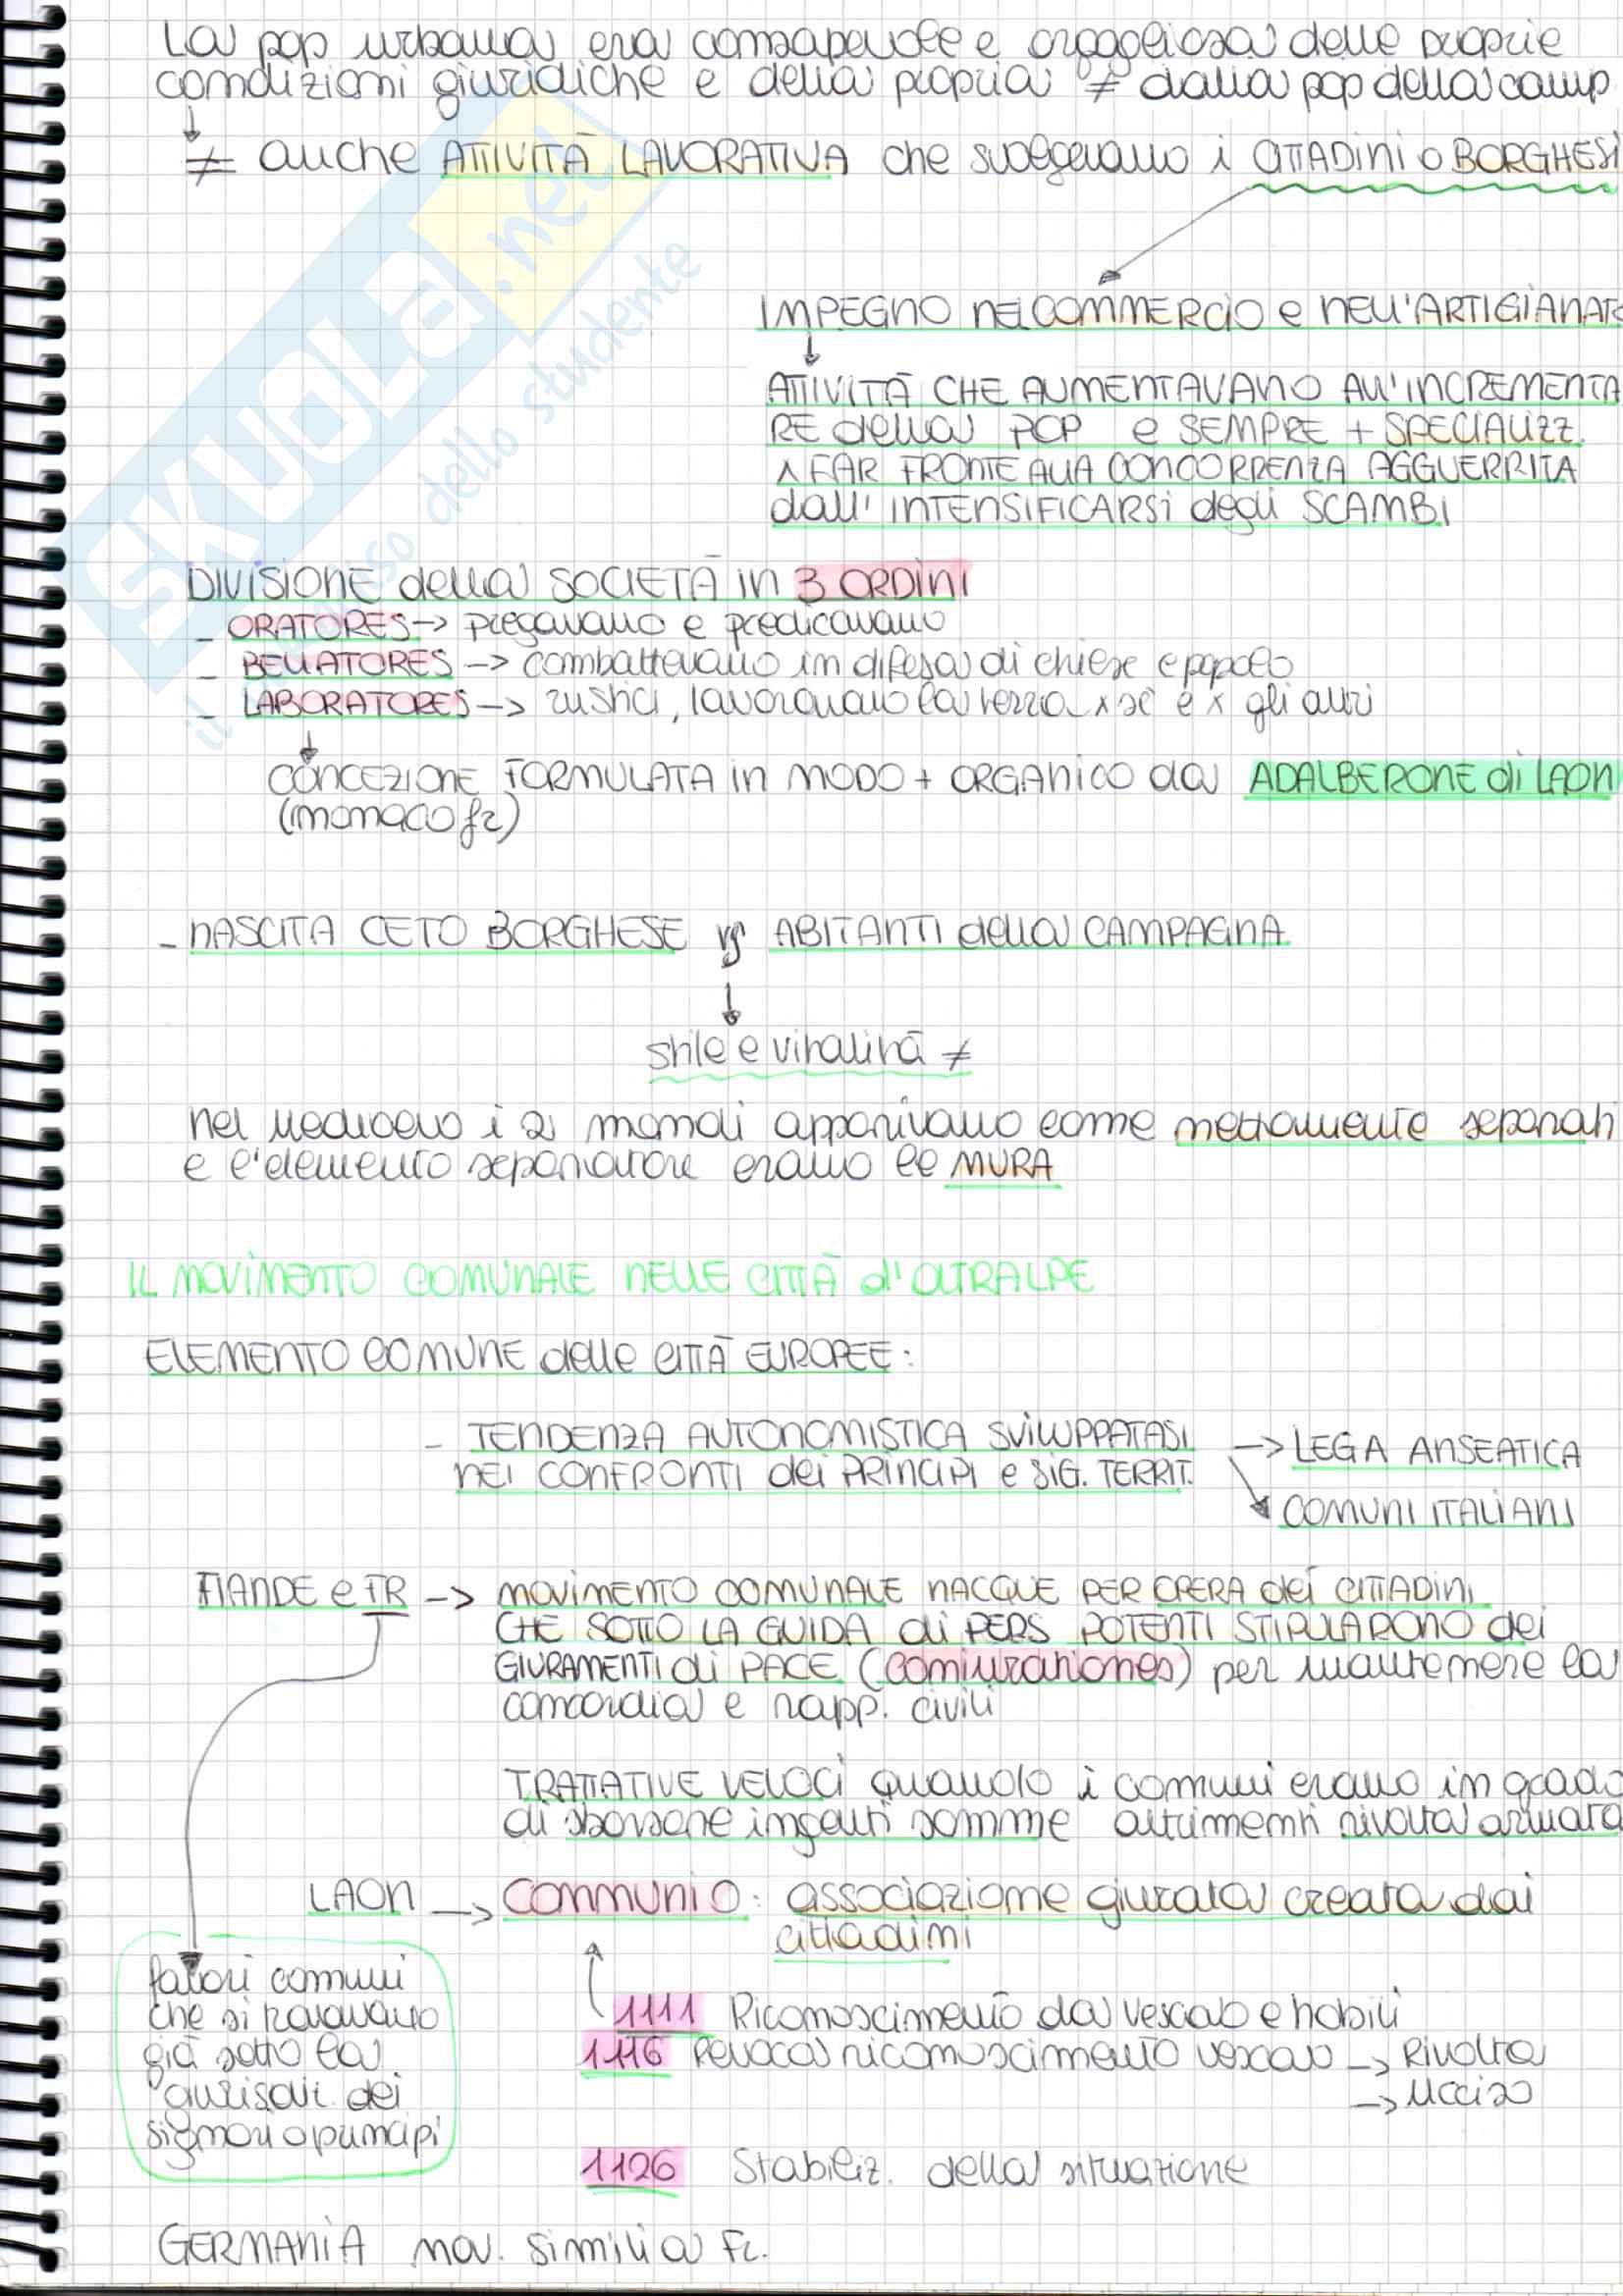 La pop urbana era consapevole e orgogliosa delle proprie
condizioni giuridiche e della propria ≠ dalla pop della camp
≠ anche ATTIVITÀ LAVORATIVA che svolgevano i CITTADINI o BORGHESI
IMPEGNO NEL COMMERCIO e NELL'ARTIGIANATO
ATTIVITÀ CHE AUMENTAVANO ALL'INCREMENTA
RE della POP e SEMPRE + SPECIALIZZ.
x FAR FRONTE ALLA CONCORRENZA AGGUERRITA
dall'INTENSIFICARSI degli SCAMBI
DIVISIONE della SOCIETÀ in 3 ORDINI
- ORATORES -> pregavano e predicavano
- BELLATORES -> combattevano in difesa di chiese e popolo
- LABORATORES -> rustici, lavoravano la terra x sé e x gli altri
CONCEZIONE FORMULATA in MODO + ORGANICO da ADALBERONE di LAON
(monaco fr)
- NASCITA CETO BORGHESE vs ABITANTI della CAMPAGNA
stile e vitalità ≠
Nel Medioevo i 2 mondi apparivano come nettamente separati
e l'elemento separatore erano le MURA
IL MOVIMENTO COMUNALE NELLE CITTÀ d'OLTRALPE
ELEMENTO COMUNE delle CITTÀ EUROPEE:
- TENDENZA AUTONOMISTICA SVILUPPATASI -> LEGA ANSEATICA
NEI CONFRONTI dei PRINCIPI e SIG. TERRIT.
COMUNI ITALIANI
FIANDE e FR -> MOVIMENTO COMUNALE NACQUE PER OPERA dei CITTADINI
CHE SOTTO LA GUIDA di PERS POTENTI STIPULARONO dei
GIURAMENTI di PACE (coniurationes) per mantenere la
concordia e rapp. civili
TRATTATIVE VELOCI quando i comuni erano in grado
di sborsare ingenti somme altrimenti rivolta armata
LAON -> COMMUNIO: associazione giurata creata dai
cittadini
fattori comuni
che si trovavano
già sotto la
giurisdiz. dei
signori o principi
1111 Riconoscimento da vescovo e nobili
1116 Revoca riconoscimento vescovo -> Rivolta
-> Ucciso
1126 Stabiliz. della situazione
GERMANIA mov. simili a Fr.
SKUOLA.net
il paradiso dello studente